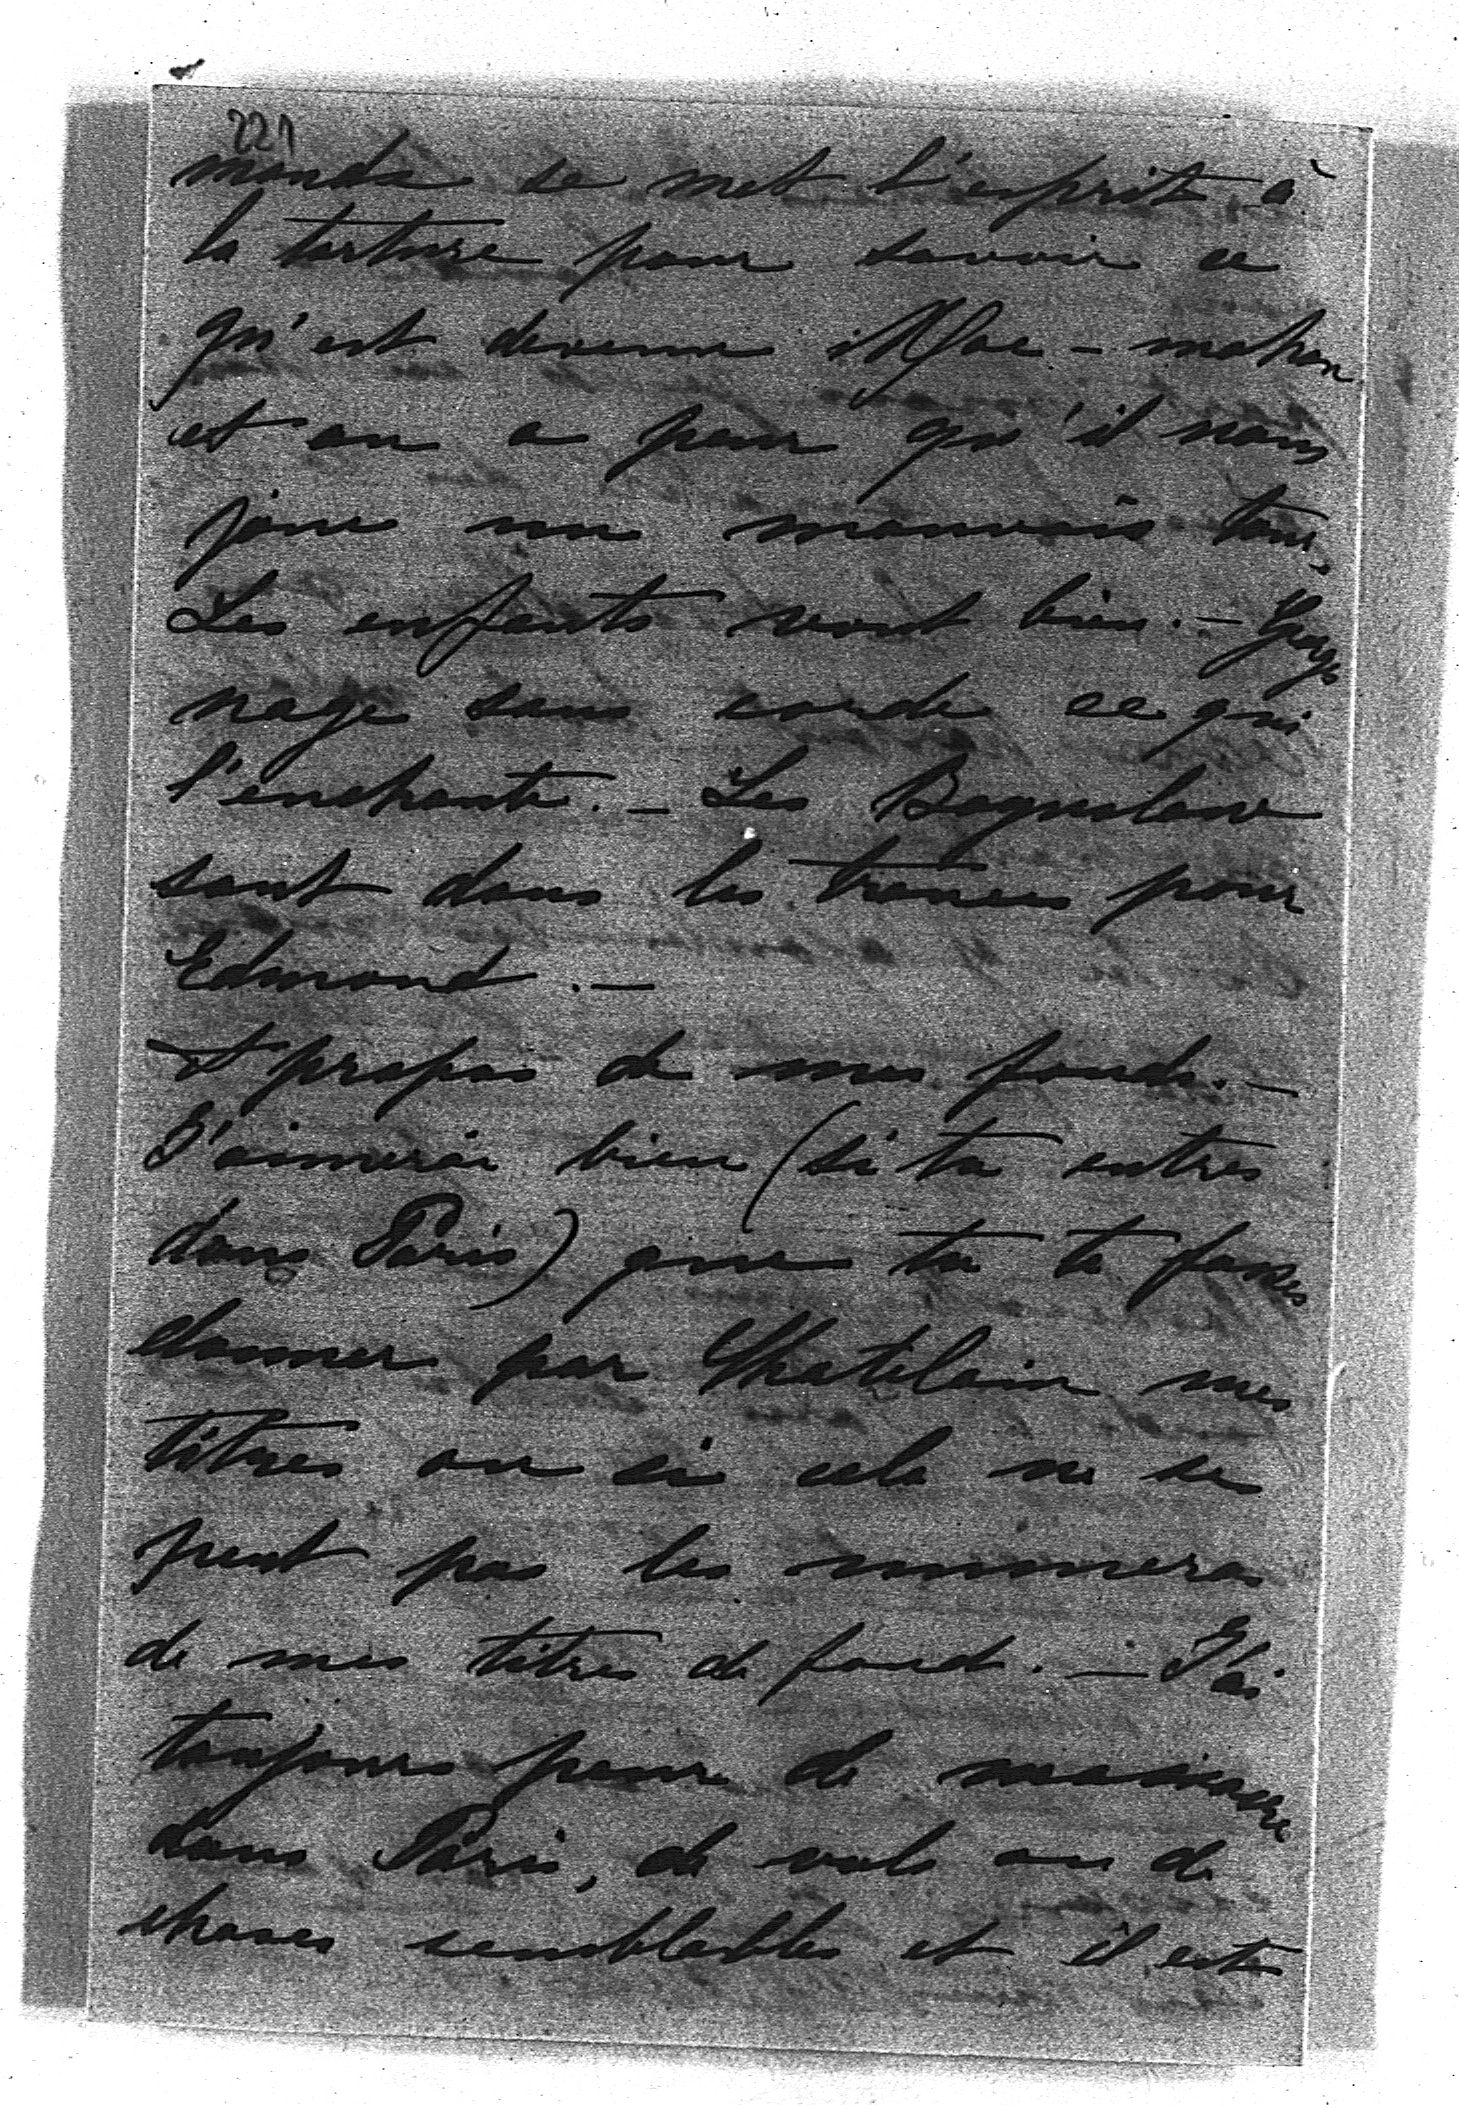 221
monde se met l'esprit à
la torture pour savoir ce
qu'est devenu Mac-mahon
et on a peur qu'il nous
joue un mauvais tour.
Les enfants vont bien. -
nage sans corde ce qui
l'enchante. - Les
sont dans les transes pour
Edmond. -
A propos de mes fonds. -
J'aimerai bien (si tu entres
dans Paris) que tu te fasses
donner par Chatelain mes
titres ou si cela ne se
peut pas les numeros
de mes titres de fonds. - J'ai
toujours peur de massacre
dans Paris, de vols ou de
choses semblables et il est